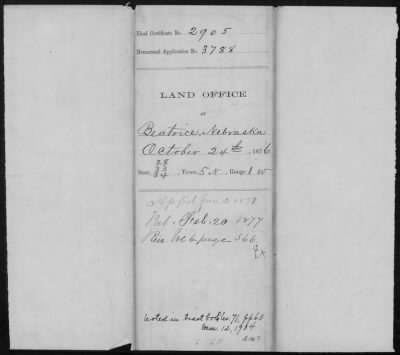 Final Certificate No. 2905
Homestead Application No. 3788
LAND OFFICE
AT
Beatrice, Nebraska
October 24th, 1876
28
33
Sect. 34, Town. 5 N, Range 1 W
Jan 2 1878
Pat. Feb. 20 1877
Rec. Vol 6 page 366
Ex
Noted in tract book Vol 71, pp 63
12, 1904